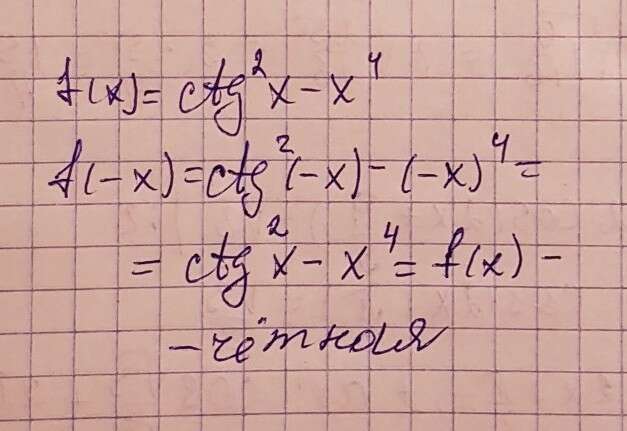 f(x) = ctg²x - x⁴
f(-x) = ctg²(-x) - (-x)⁴ =
= ctg²x - x⁴ = f(x) -
- чётная